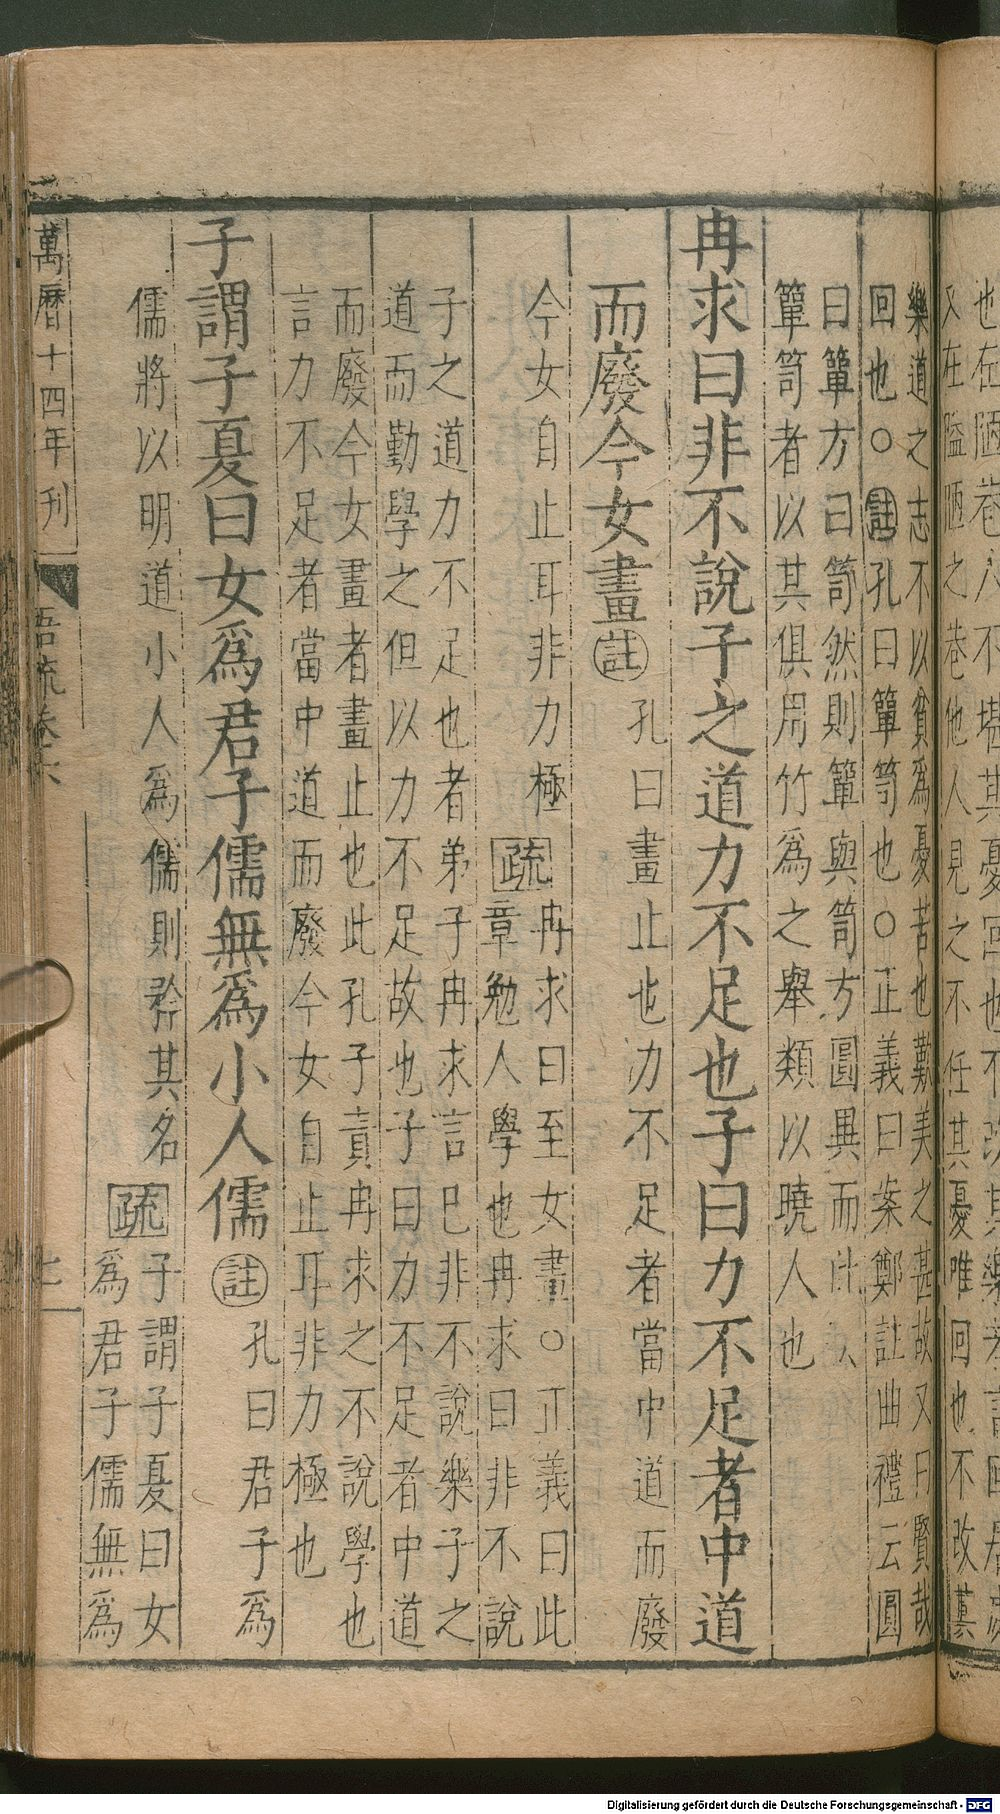 也在陋巷人不堪其憂回也不改其樂者言回居處
又在隘陋之巷他人見之不任其憂唯回也不改其
樂道之志不以貧爲憂苦也歎美之甚故又曰賢哉
回也○註孔曰簞笥也○正義曰案鄭註曲禮云圓
曰簞方曰笥然則簞與笥方圓異而此云
簞笥者以其俱用竹爲之舉類以曉人也
冉求曰非不說子之道力不足也子曰力不足者中道
而廢今女畫註孔曰畫止也力不足者當中道而廢
今女自止耳非力極疏冉求曰至女畫○正義曰此
章勉人學也冉求曰非不說
子之道力不足也者弟子冉求言已非不說樂子之
道而勤學之但以力不足故也子曰力不足者中道
而廢今女畫者畫止也此孔子責冉求之不說學也
言力不足者當中道而廢今女自止耳非力極也
子謂子夏曰女爲君子儒無爲小人儒註孔曰君子爲
儒將以明道小人爲儒則矜其名疏子謂子夏曰女
爲君子儒無爲
萬曆十四年刊
吾疏卷六